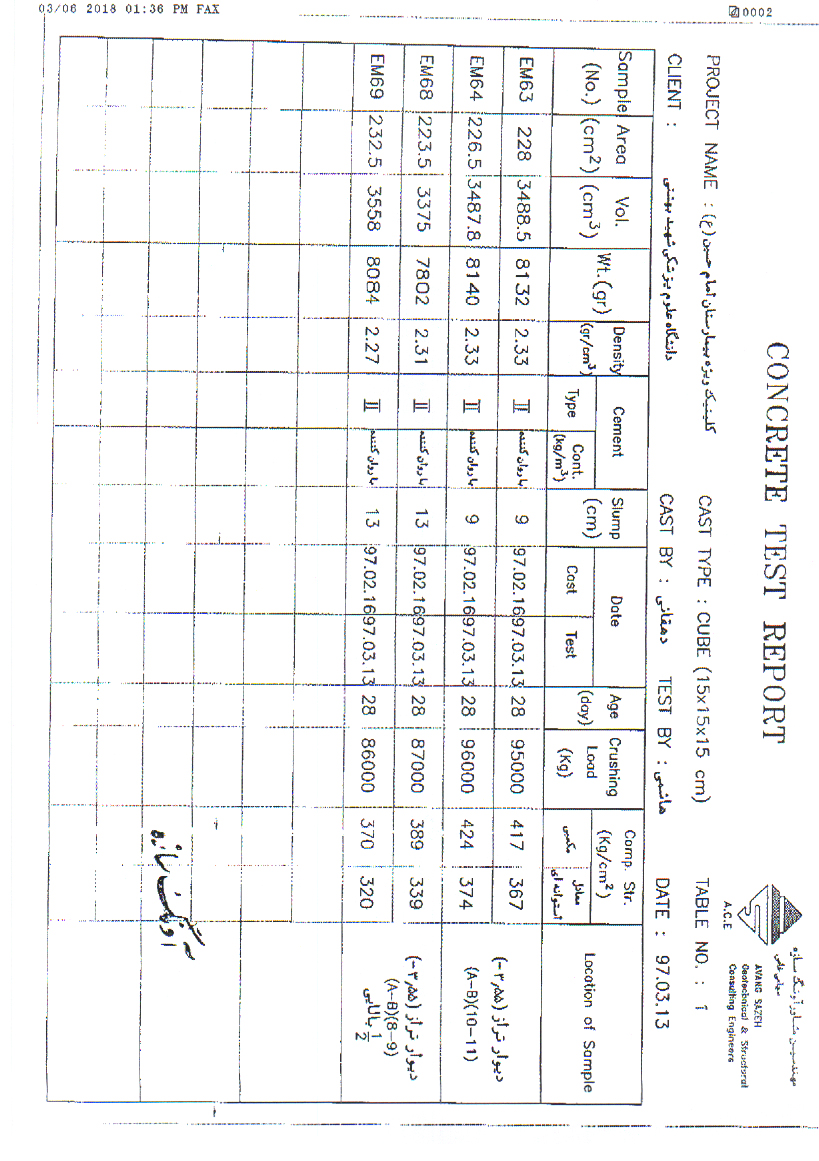 03/06 2018 01:36 PM FAX
0002
CONCRETE TEST REPORT
مهندسین مشاور آونگ سازه
AVANG SAZEH
Geotechnical & Structural
Consulting Engineers
A.C.E
PROJECT NAME : کلینیک ویژه بیمارستان امام حسین (ع) CAST TYPE : CUBE (15x15x15 cm) TABLE NO. : 1
CLIENT : دانشگاه علوم پزشکی شهید بهشتی CAST BY : دهقانی TEST BY : هاشمی DATE : 97.03.13
Sample (No.) Area (cm2) Vol. (cm3) Wt.(gr) Density (gr/cm3) Cement Type Cont. (kg/m3) Slump (cm) Date Cast Test Age (day) Crushing Load (Kg) Comp. Str. (Kg/cm2) مکعبی معادل استوانه ای Location of Sample
EM63 228 3488.5 8132 2.33 II با روان کننده 9 97.02.16 97.03.13 28 95000 417 367 دیوار تراز (-۳٫۵۵)
EM64 226.5 3487.8 8140 2.33 II با روان کننده 9 97.02.16 97.03.13 28 96000 424 374 (A-B)(10-11)
EM68 223.5 3375 7802 2.31 II با روان کننده 13 97.02.16 97.03.13 28 87000 389 339 دیوار تراز (-۳٫۵۵)
(A-B)(8-9)
EM69 232.5 3558 8084 2.27 II با روان کننده 13 97.02.16 97.03.13 28 86000 370 320 1/2 بالایی